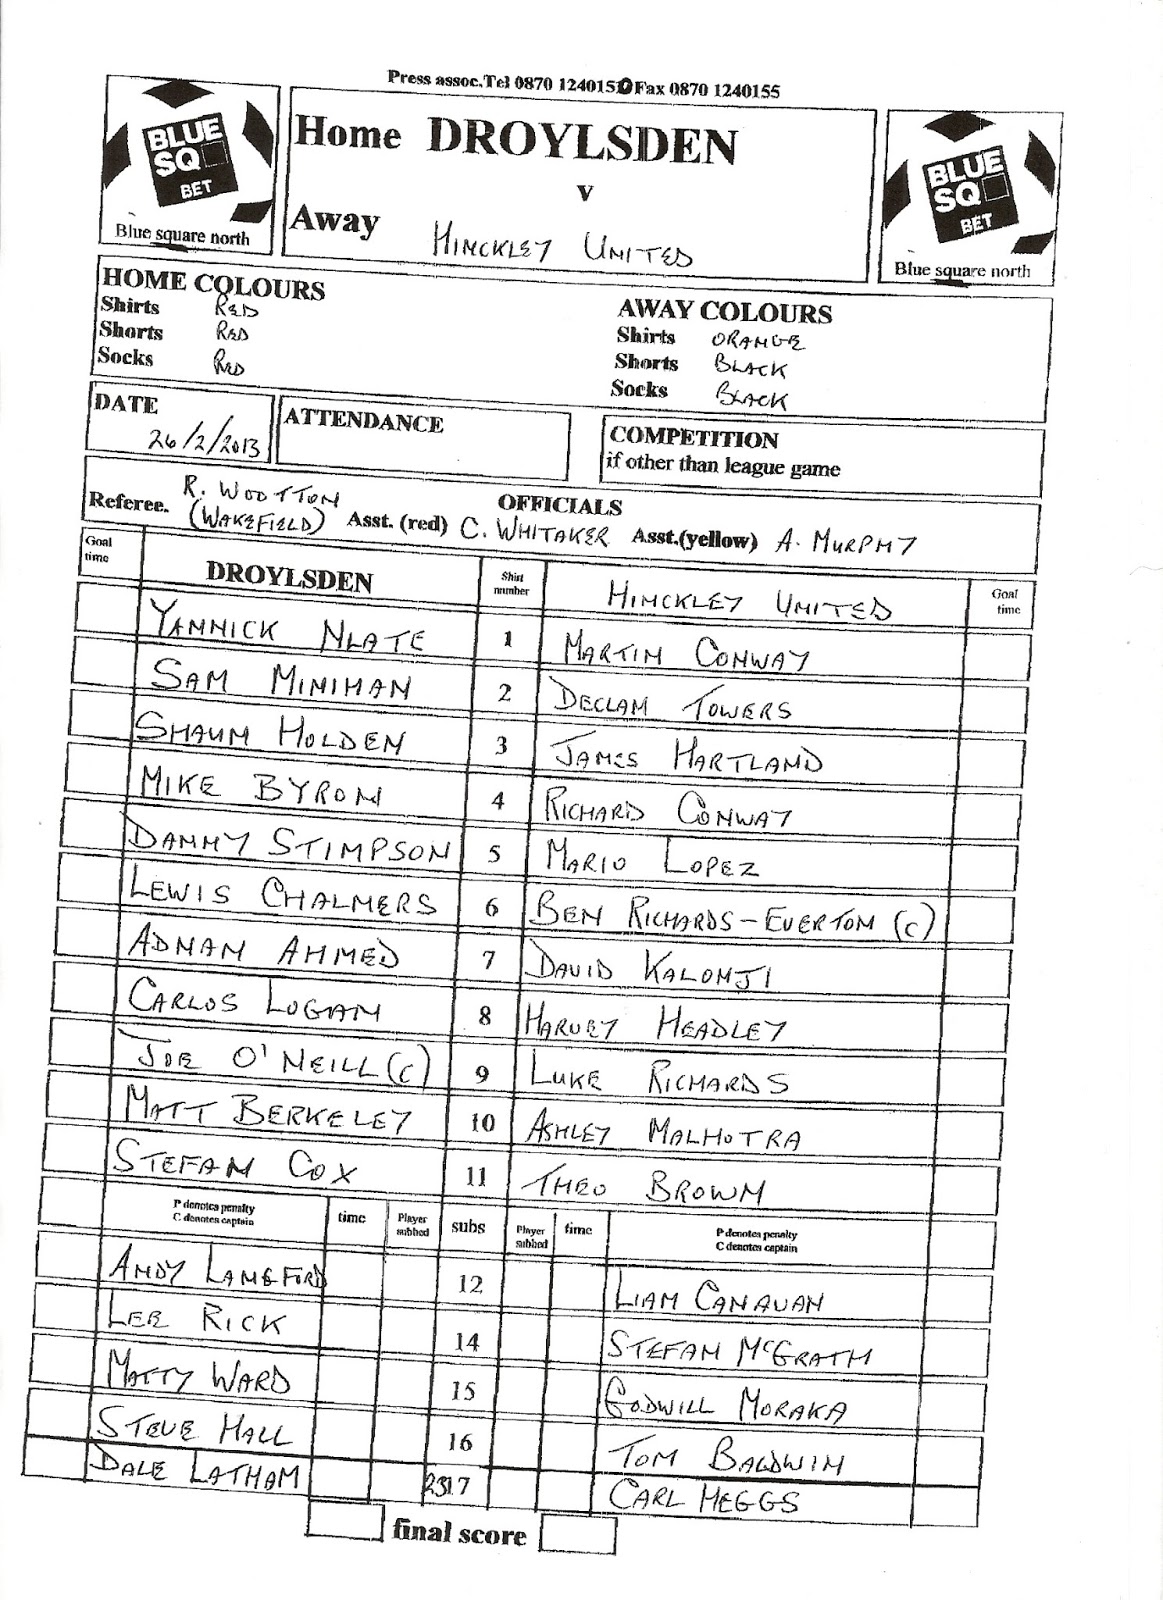 Press assoc.Tel 0870 1240150 Fax 0870 1240155
BLUE SQ BET
Blue square north
Home DROYLSDEN
v
Away HINCKLEY UNITED
BLUE SQ BET
Blue square north
HOME COLOURS
Shirts RED
Shorts RED
Socks RED
AWAY COLOURS
Shirts ORANGE
Shorts BLACK
Socks BLACK
DATE
26/2/2013
ATTENDANCE
COMPETITION
if other than league game
OFFICIALS
Referee. R. WOOTTON (WAKEFIELD) Asst. (red) C. WHITAKER Asst.(yellow) A. MURPHY
Goal time DROYLSDEN Shirt number HINCKLEY UNITED Goal time
YANNICK NLATE 1 MARTIN CONWAY
SAM MINIHAN 2 DECLAN TOWERS
SHAUN HOLDEN 3 JAMES HARTLAND
MIKE BYRON 4 RICHARD CONWAY
DANNY STIMPSON 5 MARIO LOPEZ
LEWIS CHALMERS 6 BEN RICHARDS-EVERTON (C)
ADNAN AHMED 7 DAVID KALONJI
CARLOS LOGAN 8 HARVEY HEADLEY
JOE O'NEILL (C) 9 LUKE RICHARDS
MATT BERKELEY 10 ASHLEY MALHOTRA
STEFAN COX 11 THEO BROWN
P denotes penalty C denotes captain time Player subbed subs Player subbed time P denotes penalty C denotes captain
ANDY LANGFORD 12 LIAM CANAVAN
LEE RICK 14 STEFAN McGRATH
MATTY WARD 15 GODWILL MORAKA
STEVE HALL 16 TOM BALDWIN
DALE LATHAM 23 17 CARL HEGGS
final score